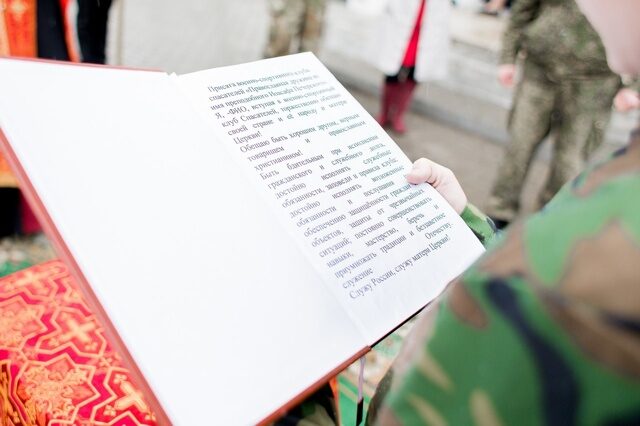 Присяга военно-спортивного клуба
спасателей «Православная дружина во
имя преподобного Иоасафа Печерского»
Я, -ФИО, вступая в военно-спортивный
клуб Спасателей, торжественно обещаю
своей стране и её народу и матери
Церкви!
Обещаю быть хорошим другом, верным
товарищем и православным
христианином!
Быть бдительным при исполнении
гражданского и служебного долга,
достойно исполнять служебные
обязанности, заповеди и правила клуба.
достойно исполнять возложенные
обязанности и послушания по
обеспечению защищённости граждан и
объектов, защиты от чрезвычайных
ситуаций; постоянно совершенствовать
навыки, мастерство, беречь и
приумножать традиции и беззаветное
служение Отечеству.
Служу России, служу матери Церкви!